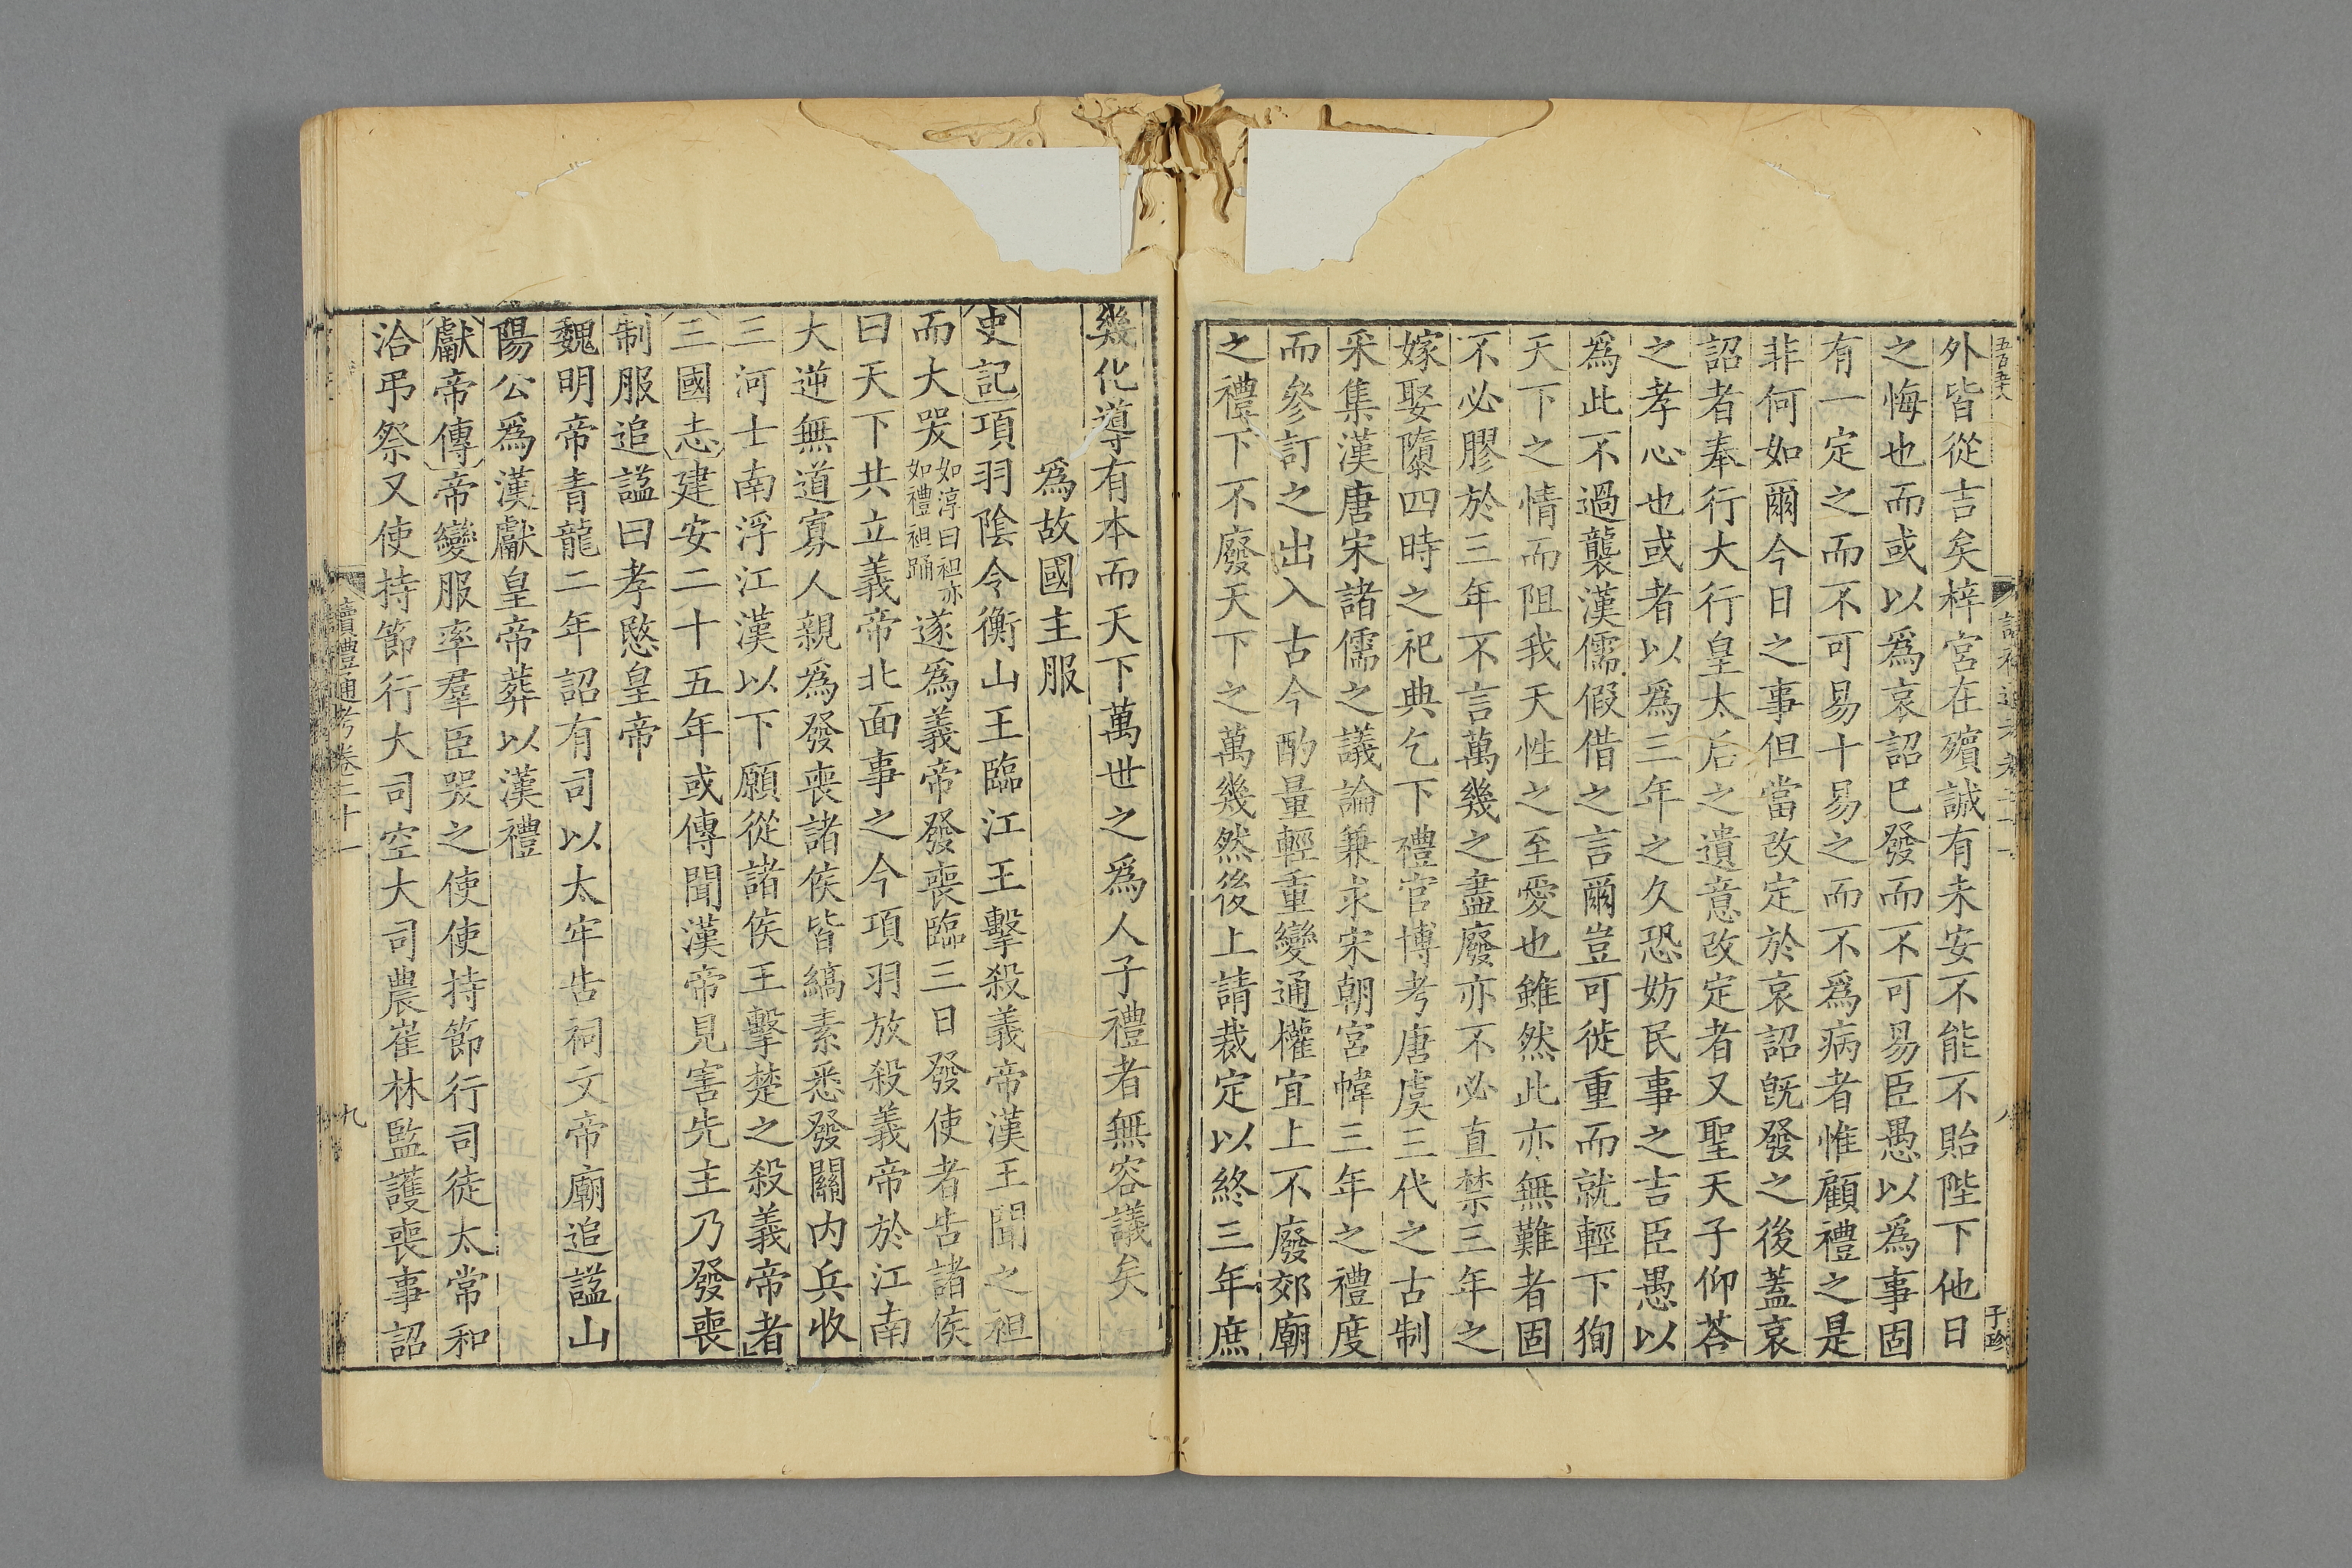 五百五十八
讀禮通考卷二十一
八
子珍
外皆從吉矣梓宮在殯誠有未安不能不貽陛下他日
之悔也而或以爲哀詔已發而不可易臣愚以爲事固
有一定之而不可易十易之而不爲病者惟顧禮之是
非何如爾今日之事但當改定於哀詔旣發之後蓋哀
詔者奉行大行皇太后之遺意改定者又聖天子仰荅
之孝心也或者以爲三年之久恐妨民事之吉臣愚以
爲此不過襲漢儒假借之言爾豈可徙重而就輕下狥
天下之情而阻我天性之至愛也雖然此亦無難者固
不必膠於三年不言萬幾之盡廢亦不必直禁三年之
嫁娶隳四時之祀典乞下禮官博考唐虞三代之古制
采集漢唐宋諸儒之議論兼求宋朝宮幃三年之禮度
而參訂之出入古今酌量輕重變通權宜上不廢郊廟
之禮下不廢天下之萬幾然後上請裁定以終三年庶
幾化導有本而天下萬世之爲人子禮者無容議矣
爲故國主服
史記項羽陰令衡山王臨江王擊殺義帝漢王聞之袒
而大哭如淳曰袒亦如禮袒踊遂爲義帝發喪臨三日發使者告諸侯
曰天下共立義帝北面事之今項羽放殺義帝於江南
大逆無道寡人親爲發喪諸侯皆縞素悉發關内兵收
三河士南浮江漢以下願從諸侯王擊楚之殺義帝者
三國志建安二十五年或傳聞漢帝見害先主乃發喪
制服追諡曰孝愍皇帝
魏明帝青龍二年詔有司以太牢告祠文帝廟追諡山
陽公爲漢獻皇帝葬以漢禮
獻帝傳帝變服率羣臣哭之使使持節行司徒太常和
洽弔祭又使持節行大司空大司農崔林監護喪事詔
讀禮通考卷二十一
九